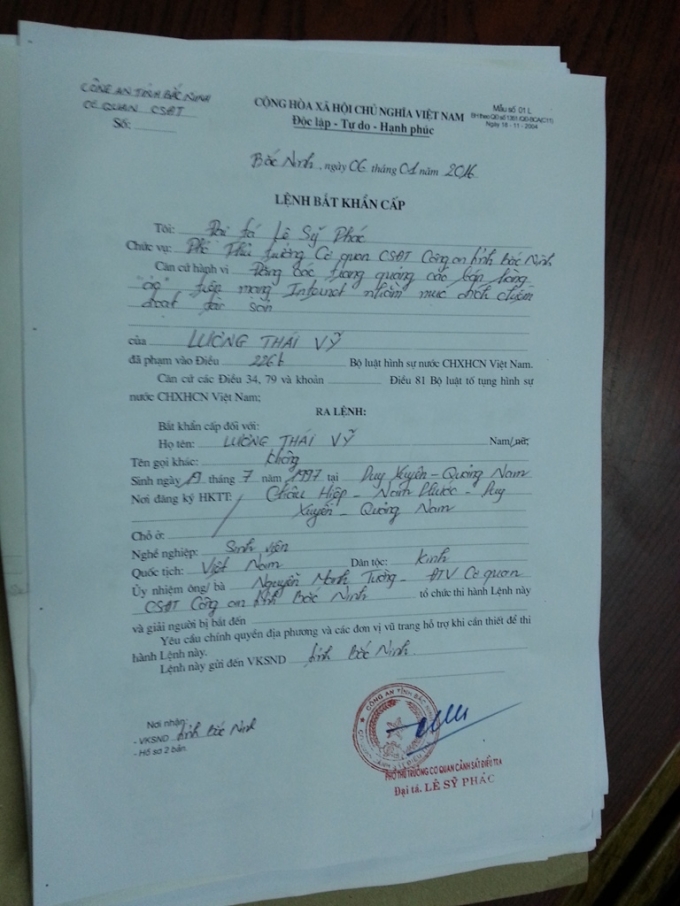 CÔNG AN TỈNH BẮC NINH
CƠ QUAN CSĐT
Số:
CỘNG HÒA XÃ HỘI CHỦ NGHĨA VIỆT NAM
Độc lập - Tự do - Hạnh phúc
Mẫu số 01 L
Ngày 18 - 11 - 2004
Bắc Ninh, ngày 06 tháng 01 năm 2016
LỆNH BẮT KHẨN CẤP
Tôi: Đại tá Lê Sỹ Phác
Chức vụ: Phó Thủ trưởng Cơ quan CSĐT Công an tỉnh Bắc Ninh
Căn cứ hành vi Đăng các trang quảng cáo bán hàng
trên mạng Internet nhằm mục đích chiếm
đoạt tài sản
của LƯƠNG THÁI VỸ
đã phạm vào Điều 226b Bộ luật hình sự nước CHXHCN Việt Nam.
Căn cứ các Điều 34, 79 và khoản Điều 81 Bộ luật tố tụng hình sự
nước CHXHCN Việt Nam;
RA LỆNH:
Bắt khẩn cấp đối với:
Họ tên: LƯƠNG THÁI VỸ Nam/nữ;
Tên gọi khác: không
Sinh ngày 19 tháng 7 năm 1997 tại Duy Xuyên - Quảng Nam
Nơi đăng ký HKTT: Châu Hiệp - Nam Phước - Duy
Xuyên - Quảng Nam
Chỗ ở:
Nghề nghiệp: Sinh viên
Quốc tịch: Việt Nam Dân tộc: Kinh
Ủy nhiệm ông/ bà Nguyễn Mạnh Tường - ĐTV Cơ quan
CSĐT Công an tỉnh Bắc Ninh tổ chức thi hành Lệnh này
và giải người bị bắt đến
Yêu cầu chính quyền địa phương và các đơn vị vũ trang hỗ trợ khi cần thiết để thi
hành Lệnh này.
Lệnh này gửi đến VKSND tỉnh Bắc Ninh
Nơi nhận:
- VKSND tỉnh Bắc Ninh
- Hồ sơ 2 bản.
CÔNG AN TỈNH BẮC NINH
PHÓ THỦ TRƯỞNG CƠ QUAN CẢNH SÁT ĐIỀU TRA
Đại tá. LÊ SỸ PHÁC